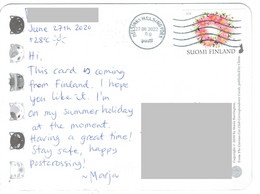 June 27th 2020
+28°C
HELSINKI HELSINGFORS
SUOMI FINLAND
Hi,
This card is coming
from Finland. I hope
you like it. I'm
on my summer holiday
at the moment.
Having a great time!
Stay safe, happy
postcrossing!
~Marja